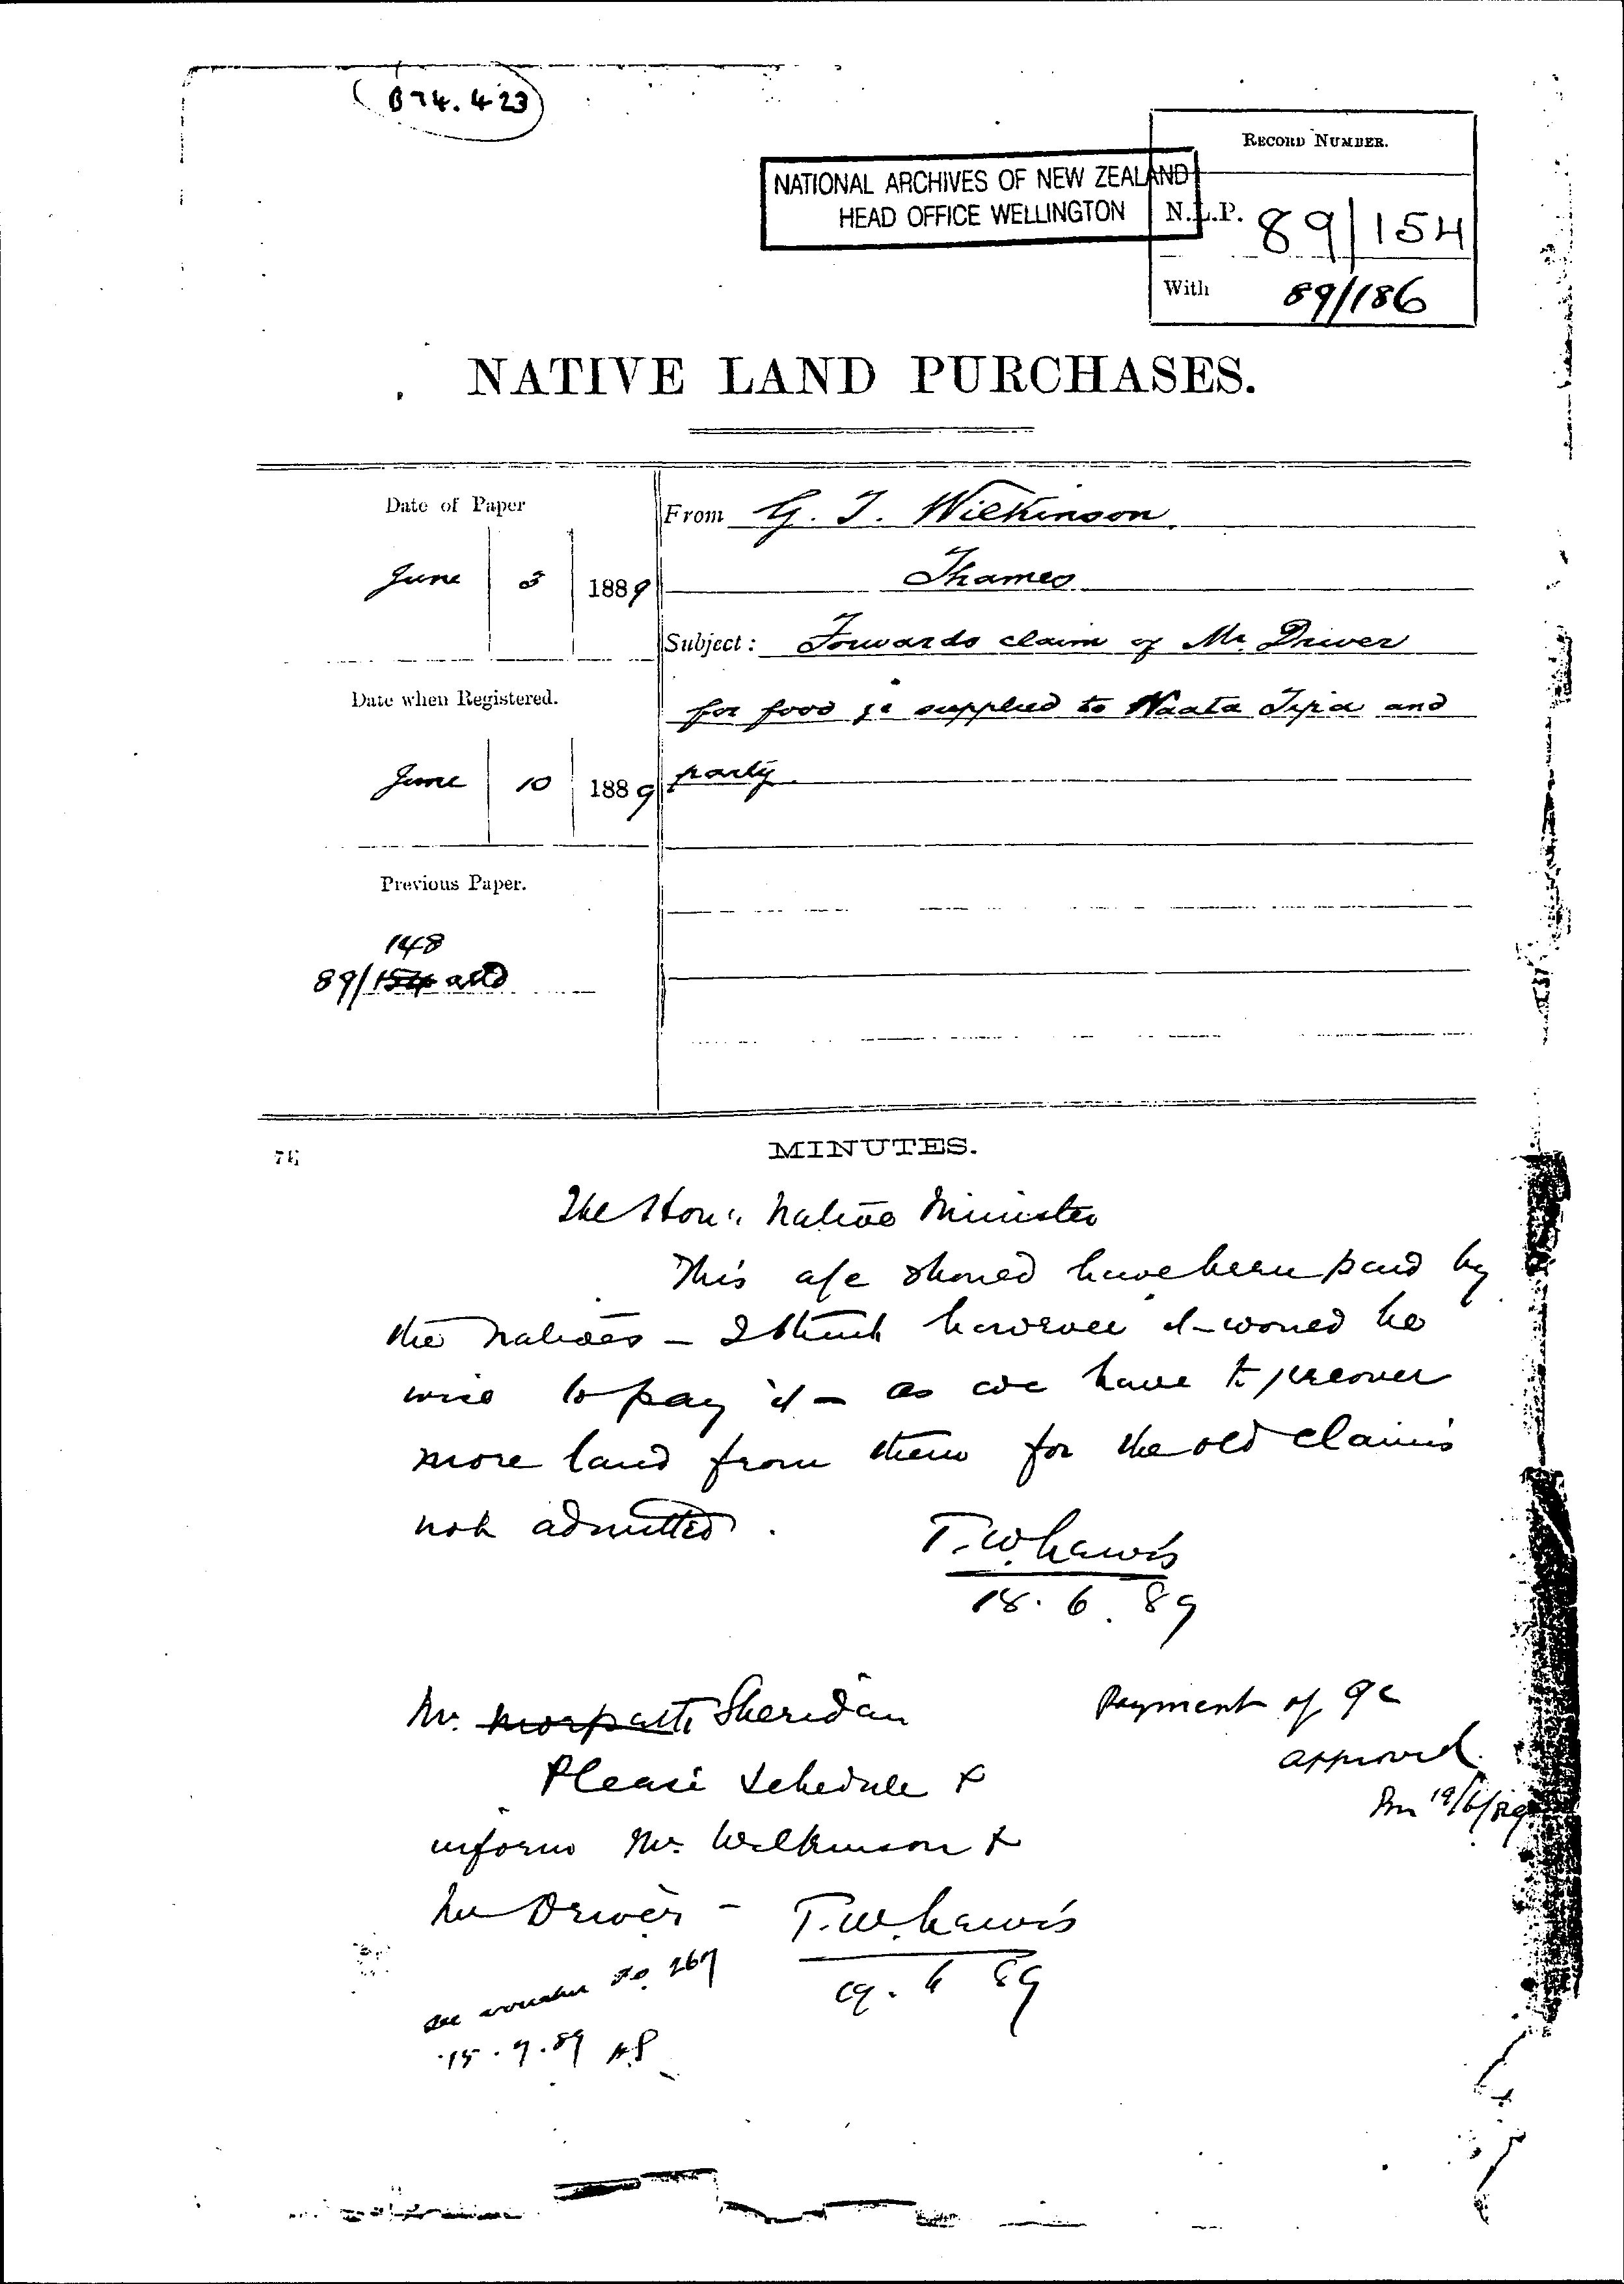 B74.423
RECORD NUMBER.
NATIONAL ARCHIVES OF NEW ZEALAND
HEAD OFFICE WELLINGTON
N.L.P. 89/154
With 89/186
NATIVE LAND PURCHASES.
Date of Paper
June 3 1889
From G. T. Wilkinson.
Thames
Subject: Forwards claim of Mr. Driver
for food &c supplied to Naata Tipa and
party.
Date when Registered.
June 10 1889
Previous Paper.
148
89/154 attd
MINUTES.
The Hon: Native Minister
This a/c should have been paid by
the natives – I think however it would be
wise to pay it – as we have to recover
more land from them for the old claims
not admitted.
T.W. Lewis
18.6.89
Mr. Morpeth Sheridan
Please schedule &
inform Mr. Wilkinson &
Mr Driver –
T.W. Lewis
19.6 89
Payment of a/c
approved.
19/6/89
See voucher No. 267
15.7.89